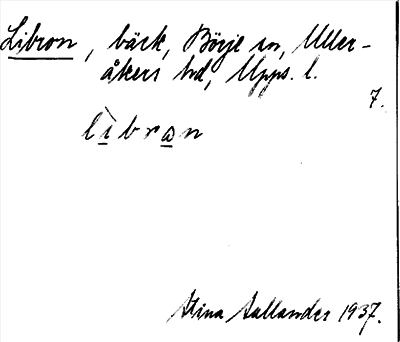 Libron, bäck, Börje sn, Uller-
åkers hd, Upps. l.
7.
lìbran
Stina Sallander 1937.